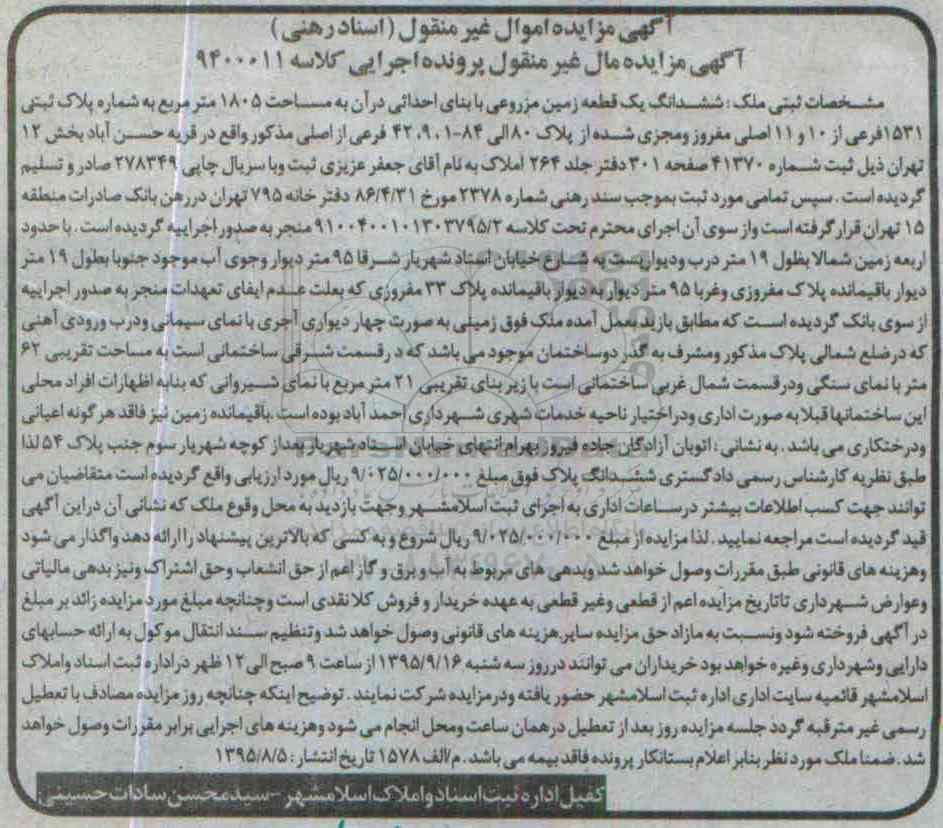 آگهی مزایده اموال غیر منقول (اسناد رهنی)
آگهی مزایده مال غیر منقول پرونده اجرایی کلاسه ۹۴۰۰۰۱۱
مشخصات ثبتی ملک: ششدانگ یک قطعه زمین مزروعی با بنای احداثی در آن به مساحت ۱۸۰۵ متر مربع به شماره پلاک ثبتی
۱۵۳۱ فرعی از ۱۰ و ۱۱ اصلی مفروز ومجزی شده از پلاک ۸۰ الی ۸۴-۹،۱، ۴۲ فرعی از اصلی مذکور واقع در قریه حسن آباد بخش ۱۲
تهران ذیل ثبت شماره ۴۱۳۷۰ صفحه ۳۰۱ دفتر جلد ۲۶۴ املاک به نام آقای جعفر عزیزی ثبت وبا سریال چاپی ۲۷۸۳۴۹ صادر و تسلیم
گردیده است. سپس تمامی مورد ثبت بموجب سند رهنی شماره ۲۳۷۸ مورخ ۸۶/۴/۳۱ دفتر خانه ۷۹۵ تهران در رهن بانک صادرات منطقه
۱۵ تهران قرار گرفته است واز سوی آن اجرای محترم تحت کلاسه ۹۱۰۰۴۰۰۱۰۱۳۰۳۷۹۵/۲ منجر به صدور اجراییه گردیده است. با حدود
اربعه زمین شمالا بطول ۱۹ متر درب ودیواریست به شارع خیابان استاد شهریار شرقا ۹۵ متر دیوار وجوی آب موجود جنوبا بطول ۱۹ متر
دیوار باقیمانده پلاک مفروزی وغربا ۹۵ متر دیوار به دیوار باقیمانده پلاک ۳۳ مفروزی که بعلت عدم ایفای تعهدات منجر به صدور اجراییه
از سوی بانک گردیده است که مطابق بازدید بعمل آمده ملک فوق زمینی به صورت چهار دیواری آجری با نمای سیمانی ودرب ورودی آهنی
که در ضلع شمالی پلاک مذکور ومشرف به گذر دوساختمان موجود می باشد که در قسمت شرقی ساختمانی است به مساحت تقریبی ۶۲
متر با نمای سنگی ودر قسمت شمال غربی ساختمانی است با زیر بنای تقریبی ۲۱ متر مربع با نمای شیروانی که بنابه اظهارات افراد محلی
این ساختمانها قبلا به صورت اداری ودر اختیار ناحیه خدمات شهری شهرداری احمد آباد بوده است. باقیمانده زمین نیز فاقد هرگونه اعیانی
ودرختکاری می باشد. به نشانی: اتوبان آزادگان جاده فیروز بهرام انتهای خیابان استاد شهریار بعد از کوچه شهریار سوم جنب پلاک ۵۴ لذا
طبق نظریه کارشناس رسمی دادگستری ششدانگ پلاک فوق مبلغ ۹/۰۲۵/۰۰۰/۰۰۰ ریال مورد ارزیابی واقع گردیده است متقاضیان می
توانند جهت کسب اطلاعات بیشتر در ساعات اداری به اجرای ثبت اسلامشهر وجهت بازدید به محل وقوع ملک که نشانی آن در این آگهی
قید گردیده است مراجعه نمایید. لذا مزایده از مبلغ ۹/۰۲۵/۰۰۰/۰۰۰ ریال شروع و به کسی که بالاترین پیشنهاد را ارائه دهد واگذار می شود
وهزینه های قانونی طبق مقررات وصول خواهد شد وبدهی های مربوط به آب و برق و گاز اعم از حق انشعاب وحق اشتراک ونیز بدهی مالیاتی
وعوارض شهرداری تا تاریخ مزایده اعم از قطعی وغیر قطعی به عهده خریدار و فروش کلا نقدی است وچنانچه مبلغ مورد مزایده زائد بر مبلغ
در آگهی فروخته شود ونسبت به مازاد حق مزایده سایر هزینه های قانونی وصول خواهد شد وتنظیم سند انتقال موکول به ارائه حسابهای
دارایی وشهرداری وغیره خواهد بود خریداران می توانند در روز سه شنبه ۱۳۹۵/۹/۱۶ از ساعت ۹ صبح الی ۱۲ ظهر در اداره ثبت اسناد واملاک
اسلامشهر قائمیه سایت اداری اداره ثبت اسلامشهر حضور یافته ودر مزایده شرکت نمایند. توضیح اینکه چنانچه روز مزایده مصادف با تعطیل
رسمی غیر مترقبه گردد جلسه مزایده روز بعد از تعطیل در همان ساعت ومحل انجام می شود وهزینه های اجرایی برابر مقررات وصول خواهد
شد. ضمنا ملک مورد نظر بنابر اعلام بستانکار پرونده فاقد بیمه می باشد. م/الف ۱۵۷۸ تاریخ انتشار: ۱۳۹۵/۸/۵
کفیل اداره ثبت اسناد واملاک اسلامشهر - سید محسن سادات حسینی